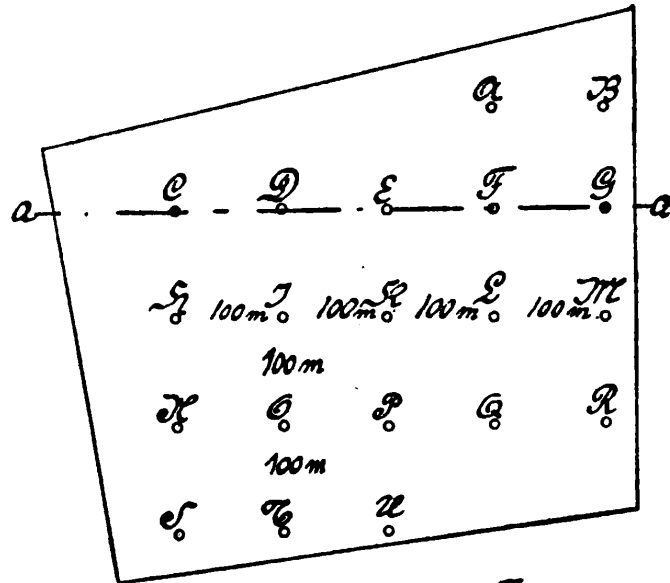 A B
C D E F G
a a
H 100m J 100m K 100m L 100m M
100m
N O P Q R
100m
S T U